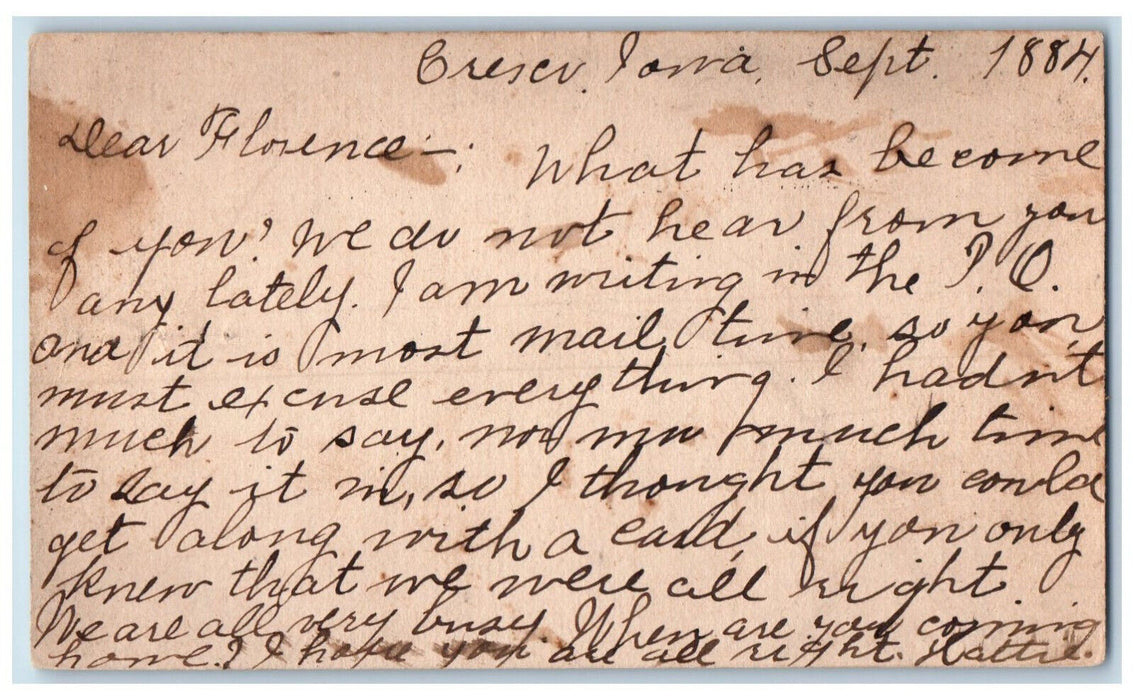 Cresco, Iowa, Sept. 1884.
Dear Florence—: What has become
of you? We do not hear from you
any lately. I am writing in the P.O.
and it is most mail time, so you
must excuse everything. I hadn't
much to say, nor much time
to say it in, so I thought you could
get along with a card, if you only
knew that we were all right.
We are all very busy. When are you coming
home? I hope you are all right. Hattie.